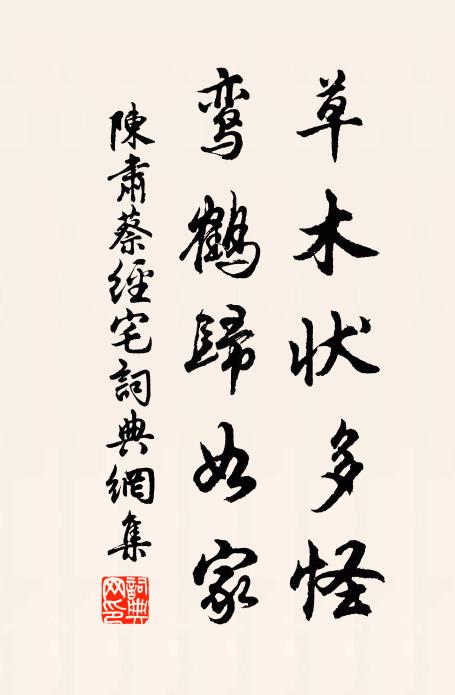 草木状多怪
鸾鹤歸如家
陳肅蔡經宅詞典網集
詞典網印